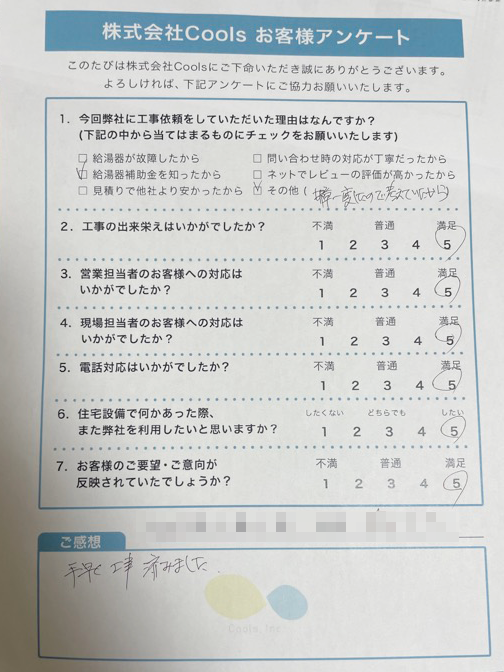 株式会社Cools お客様アンケート
このたびは株式会社Coolsにご下命いただき誠にありがとうございます。
よろしければ、下記アンケートにご協力お願いいたします。
1. 今回弊社に工事依頼をしていただいた理由はなんですか?
(下記の中から当てはまるものにチェックをお願いいたします)
給湯器が故障したから 問い合わせ時の対応が丁寧だったから
給湯器補助金を知ったから ネットでレビューの評価が高かったから
見積りで他社より安かったから その他( 考えていたから)
2. 工事の出来栄えはいかがでしたか? 不満 普通 満足
1 2 3 4 5
3. 営業担当者のお客様への対応は 不満 普通 満足
いかがでしたか? 1 2 3 4 5
4. 現場担当者のお客様への対応は 不満 普通 満足
いかがでしたか? 1 2 3 4 5
5. 電話対応はいかがでしたか? 不満 普通 満足
1 2 3 4 5
6. 住宅設備で何かあった際、 したくない どちらでも したい
また弊社を利用したいと思いますか? 1 2 3 4 5
7. お客様のご要望・ご意向が 不満 普通 満足
反映されていたでしょうか? 1 2 3 4 5
ご感想
手早く工事済みました
Cools Inc.